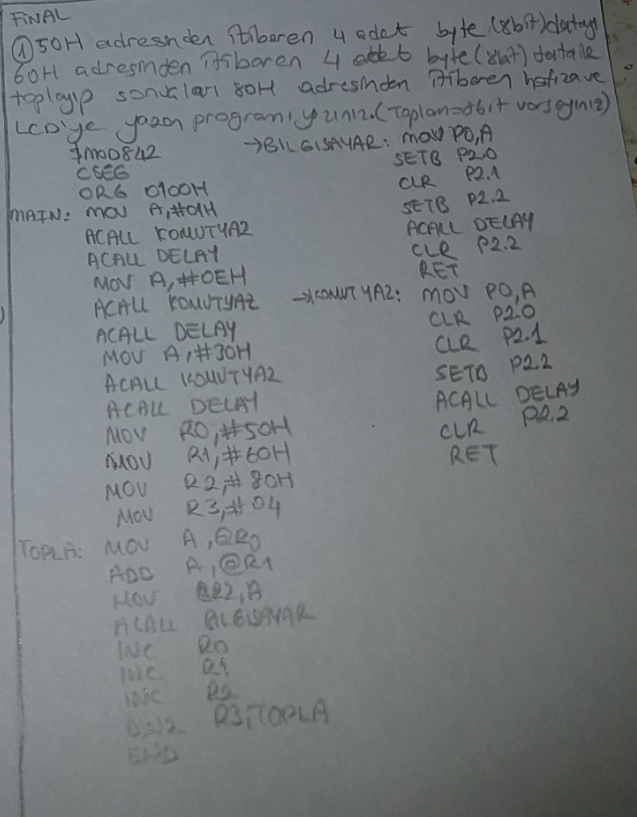 FiNAL
① 50H adresinden itibaren 4 adet byte (8bit) datayı
60H adresinden itibaren 4 adet byte (8bit) data ile
toplayıp sonuçları 80H adresinden itibaren hafızaya ve
LCD'ye yazan programı yazınız. (Toplam=8bit varsayınız)
$MOD842
CSEG
ORG 0100H
MAIN: MOV A,#01H
ACALL KOMUTYAZ
ACALL DELAY
MOV A,#0EH
ACALL KOMUTYAZ
ACALL DELAY
MOV A,#30H
ACALL KOMUTYAZ
ACALL DELAY
MOV R0,#50H
MOV R1,#60H
MOV R2,#80H
MOV R3,#04
TOPLA: MOV A,@R0
ADD A,@R1
MOV @R2,A
ACALL BILGISAYAR
INC R0
INC R1
INC R2
DJNZ R3,TOPLA
END
→BILGISAYAR: MOV P0,A
SETB P2.0
CLR P2.1
SETB P2.2
ACALL DELAY
CLR P2.2
RET
→KOMUTYAZ: MOV P0,A
CLR P2.0
CLR P2.1
SETB P2.2
ACALL DELAY
CLR P2.2
RET